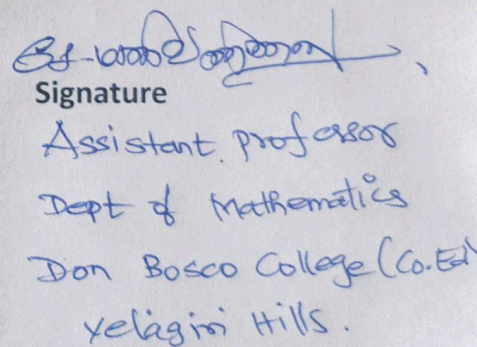 Signature
Assistant. professor
Dept of Mathematics
Don Bosco College (Co.Ed)
Yelagiri Hills.